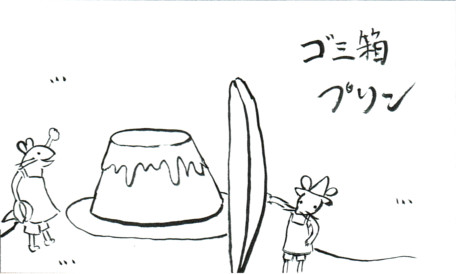 ゴミ箱
プリン